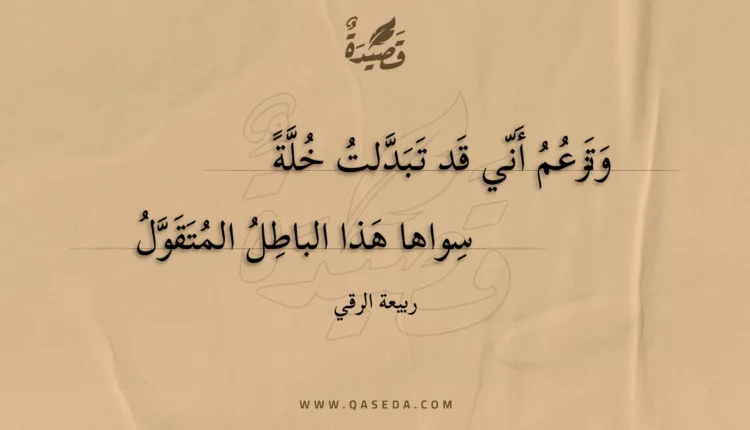 قَصِيْدَةٌ
وَتَزعُمُ أَنّي قَد تَبَدَّلتُ خُلَّةً
سِواها هَذا الباطِلُ المُتَقَوَّلُ
ربيعة الرقي
WWW.QASEDA.COM